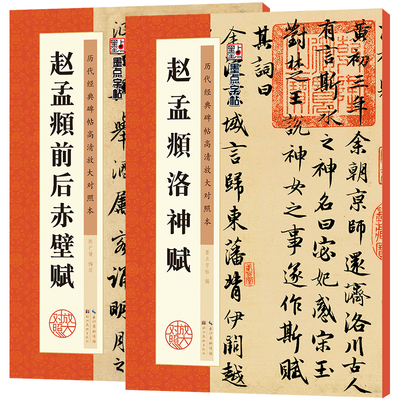 历代经典碑帖高清放大对照本
墨点字帖
赵孟頫前后赤壁赋
放大
对照
历代经典碑帖高清放大对照本
墨点字帖
赵孟頫洛神赋
墨点字帖 编
放大
对照
黄初三年余朝京師還濟洛川古人
有言斯水之神名曰宓妃感宋玉
對楚王說神女之事遂作斯賦
其詞曰
余從京域言歸東藩背伊闕越